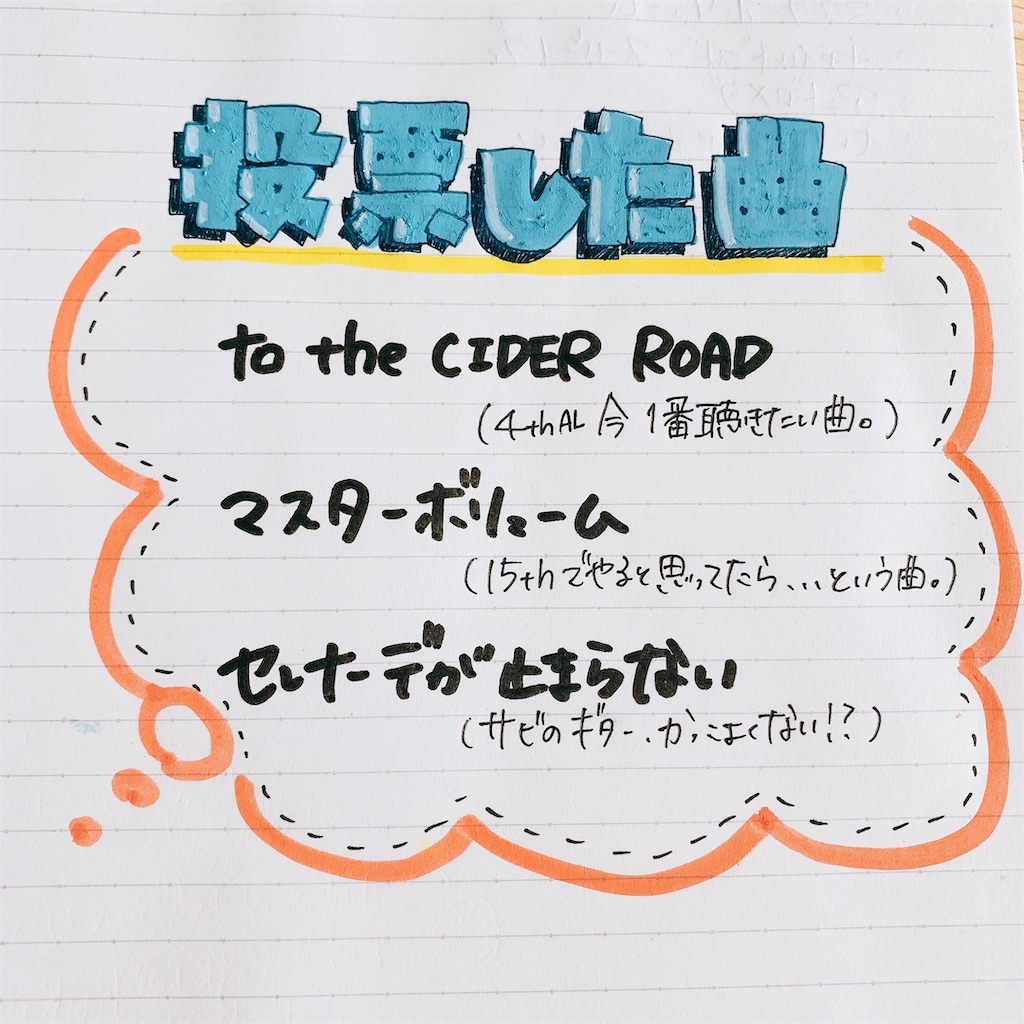 投票した曲
to the CIDER ROAD
(4thAL 今1番聴きたい曲。)
マスターボリューム
(15thでやると思ってたら...という曲。)
セレナーデが止まらない
(サビのギター、かっこよくない!?)